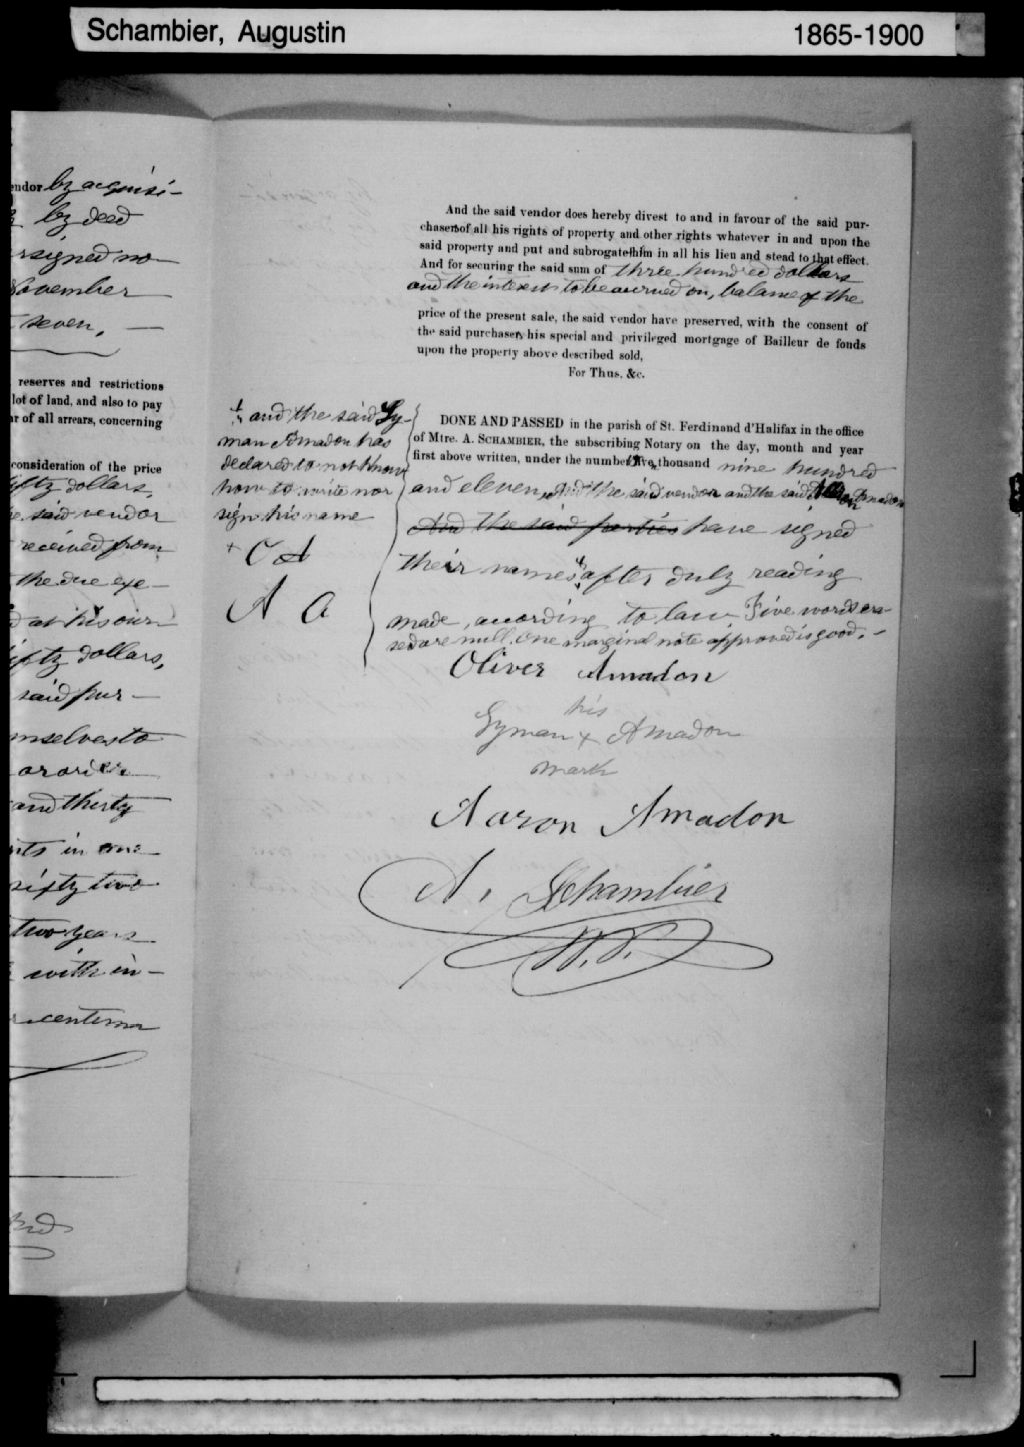 Schambier, Augustin
1865-1900
endor by acquisi-
by deed
rsigned no
November
seven, —
reserves and restrictions
lot of land, and also to pay
ar of all arrears, concerning
consideration of the price
ifty dollars,
he said vendor
received from
the due exe-
d at his
ifty dollars,
said pur-
mselves to
or order
and thirty
nts in one
sixty two
two years
with in-
centum
And the said vendor does hereby divest to and in favour of the said pur-
chasers of all his rights of property and other rights whatever in and upon the
said property and put and subrogate him in all his lieu and stead to that effect.
And for securing the said sum of three hundred dollars
and the interests to be accrued on, balance of the
price of the present sale, the said vendor have preserved, with the consent of
the said purchasers his special and privileged mortgage of Bailleur de fonds
upon the property above described sold,
For Thus, &c.
+ and the said Ly-
man Amadon has
declared to not know
how to write nor
sign his name
+ O A
A A
DONE AND PASSED in the parish of St. Ferdinand d'Halifax in the office
of Mtre. A. SCHAMBIER, the subscribing Notary on the day, month and year
first above written, under the number five thousand nine hundred
and eleven, And the said vendor and the said Aaron Amadon
And the said parties have signed
their names + after duly reading
made, according to law. Five words era-
sed are null. One marginal note approved is good. -
Oliver Amadon
his
Lyman x Amadon
mark
Aaron Amadon
A. Schambier
N.P.